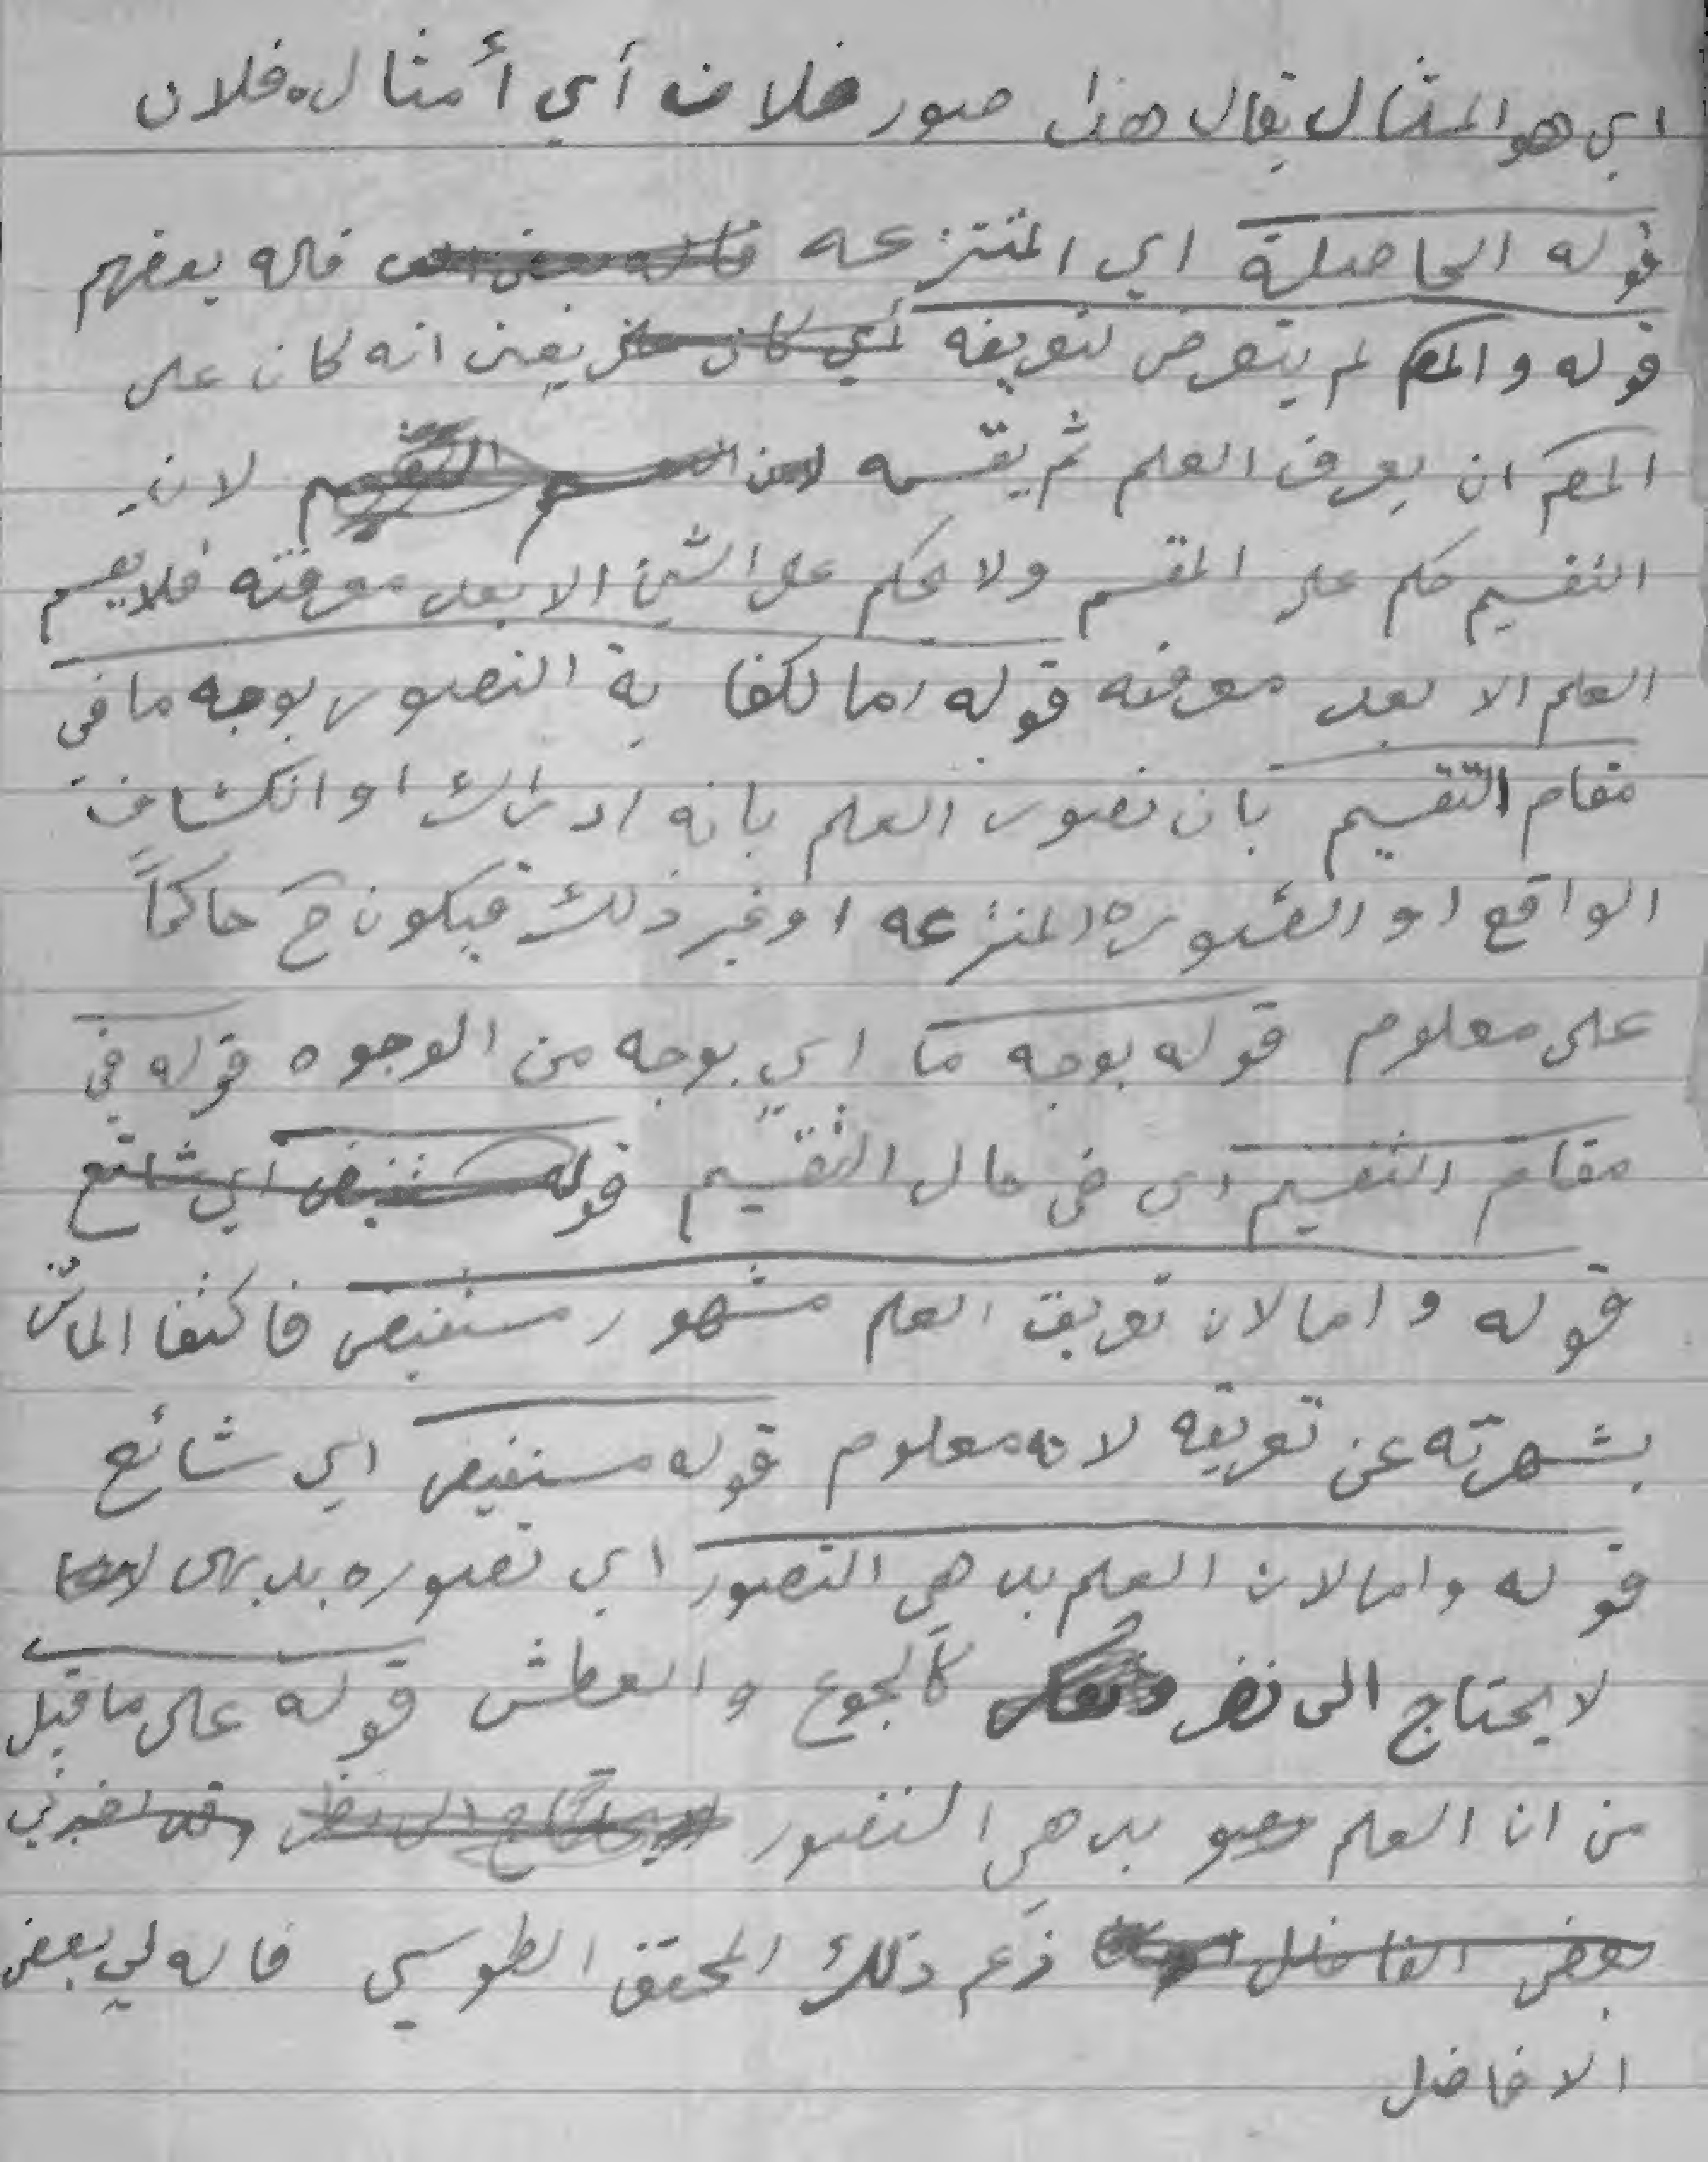 اي هو المثال يقال هذا صور فلان أي أمثال فلان
قوله الحاصلة اي المنتزعه قاله بعضهم
قوله والمصم لم يتعرض لتعريفه يعني انه كان على
المصم ان يعرف العلم ثم يقسمه لان
التقسيم حكم على المقسم ولا يحكم على الشيئ الا بعد معرفته فلا يقسم
العلم الا بعد معرفته قوله اما لكفاية التصور بوجه ما في
مقام التقسيم بان نصور العلم بانه ادراك او انكشاف
الواقع او الصوره المنتزعه او غير ذلك فيكون ح حاكماً
على معلوم قوله بوجه ما اي بوجه من الوجوه قوله في
مقام التقسيم اي في حال التقسيم قوله مستفيض اي شائع
قوله واما لان تعريف العلم مشهور مستفيض فاكتفا الماتن
بشهرته عن تعريفه لانه معلوم قوله مستفيض اي شائع
قوله واما لان العلم بدهي التصور اي تصوره بديهي
لا يحتاج الى نضر كالجوع والعطش قوله على ما قيل
من ان العلم بدهي التصور وقد اخبرني
بعض الفاضل زعم ذلك المحقق الطوسي قاله لي بعض
الافاضل